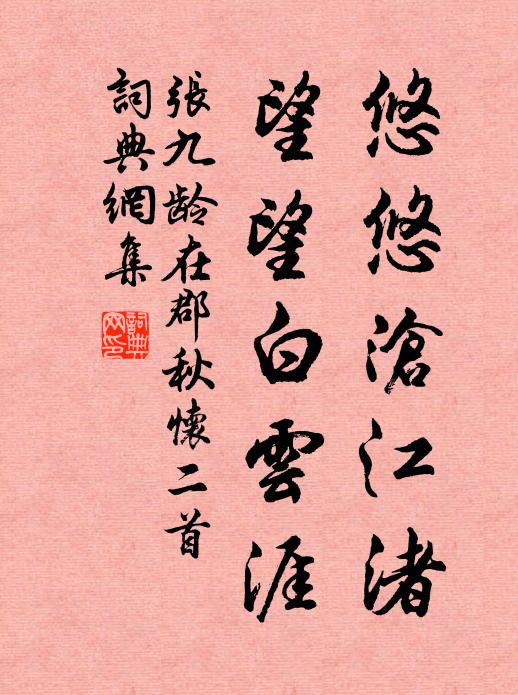 悠悠滄江渚
望望白雲涯
張九齡在郡秋懷二首
詞典網集
詞典